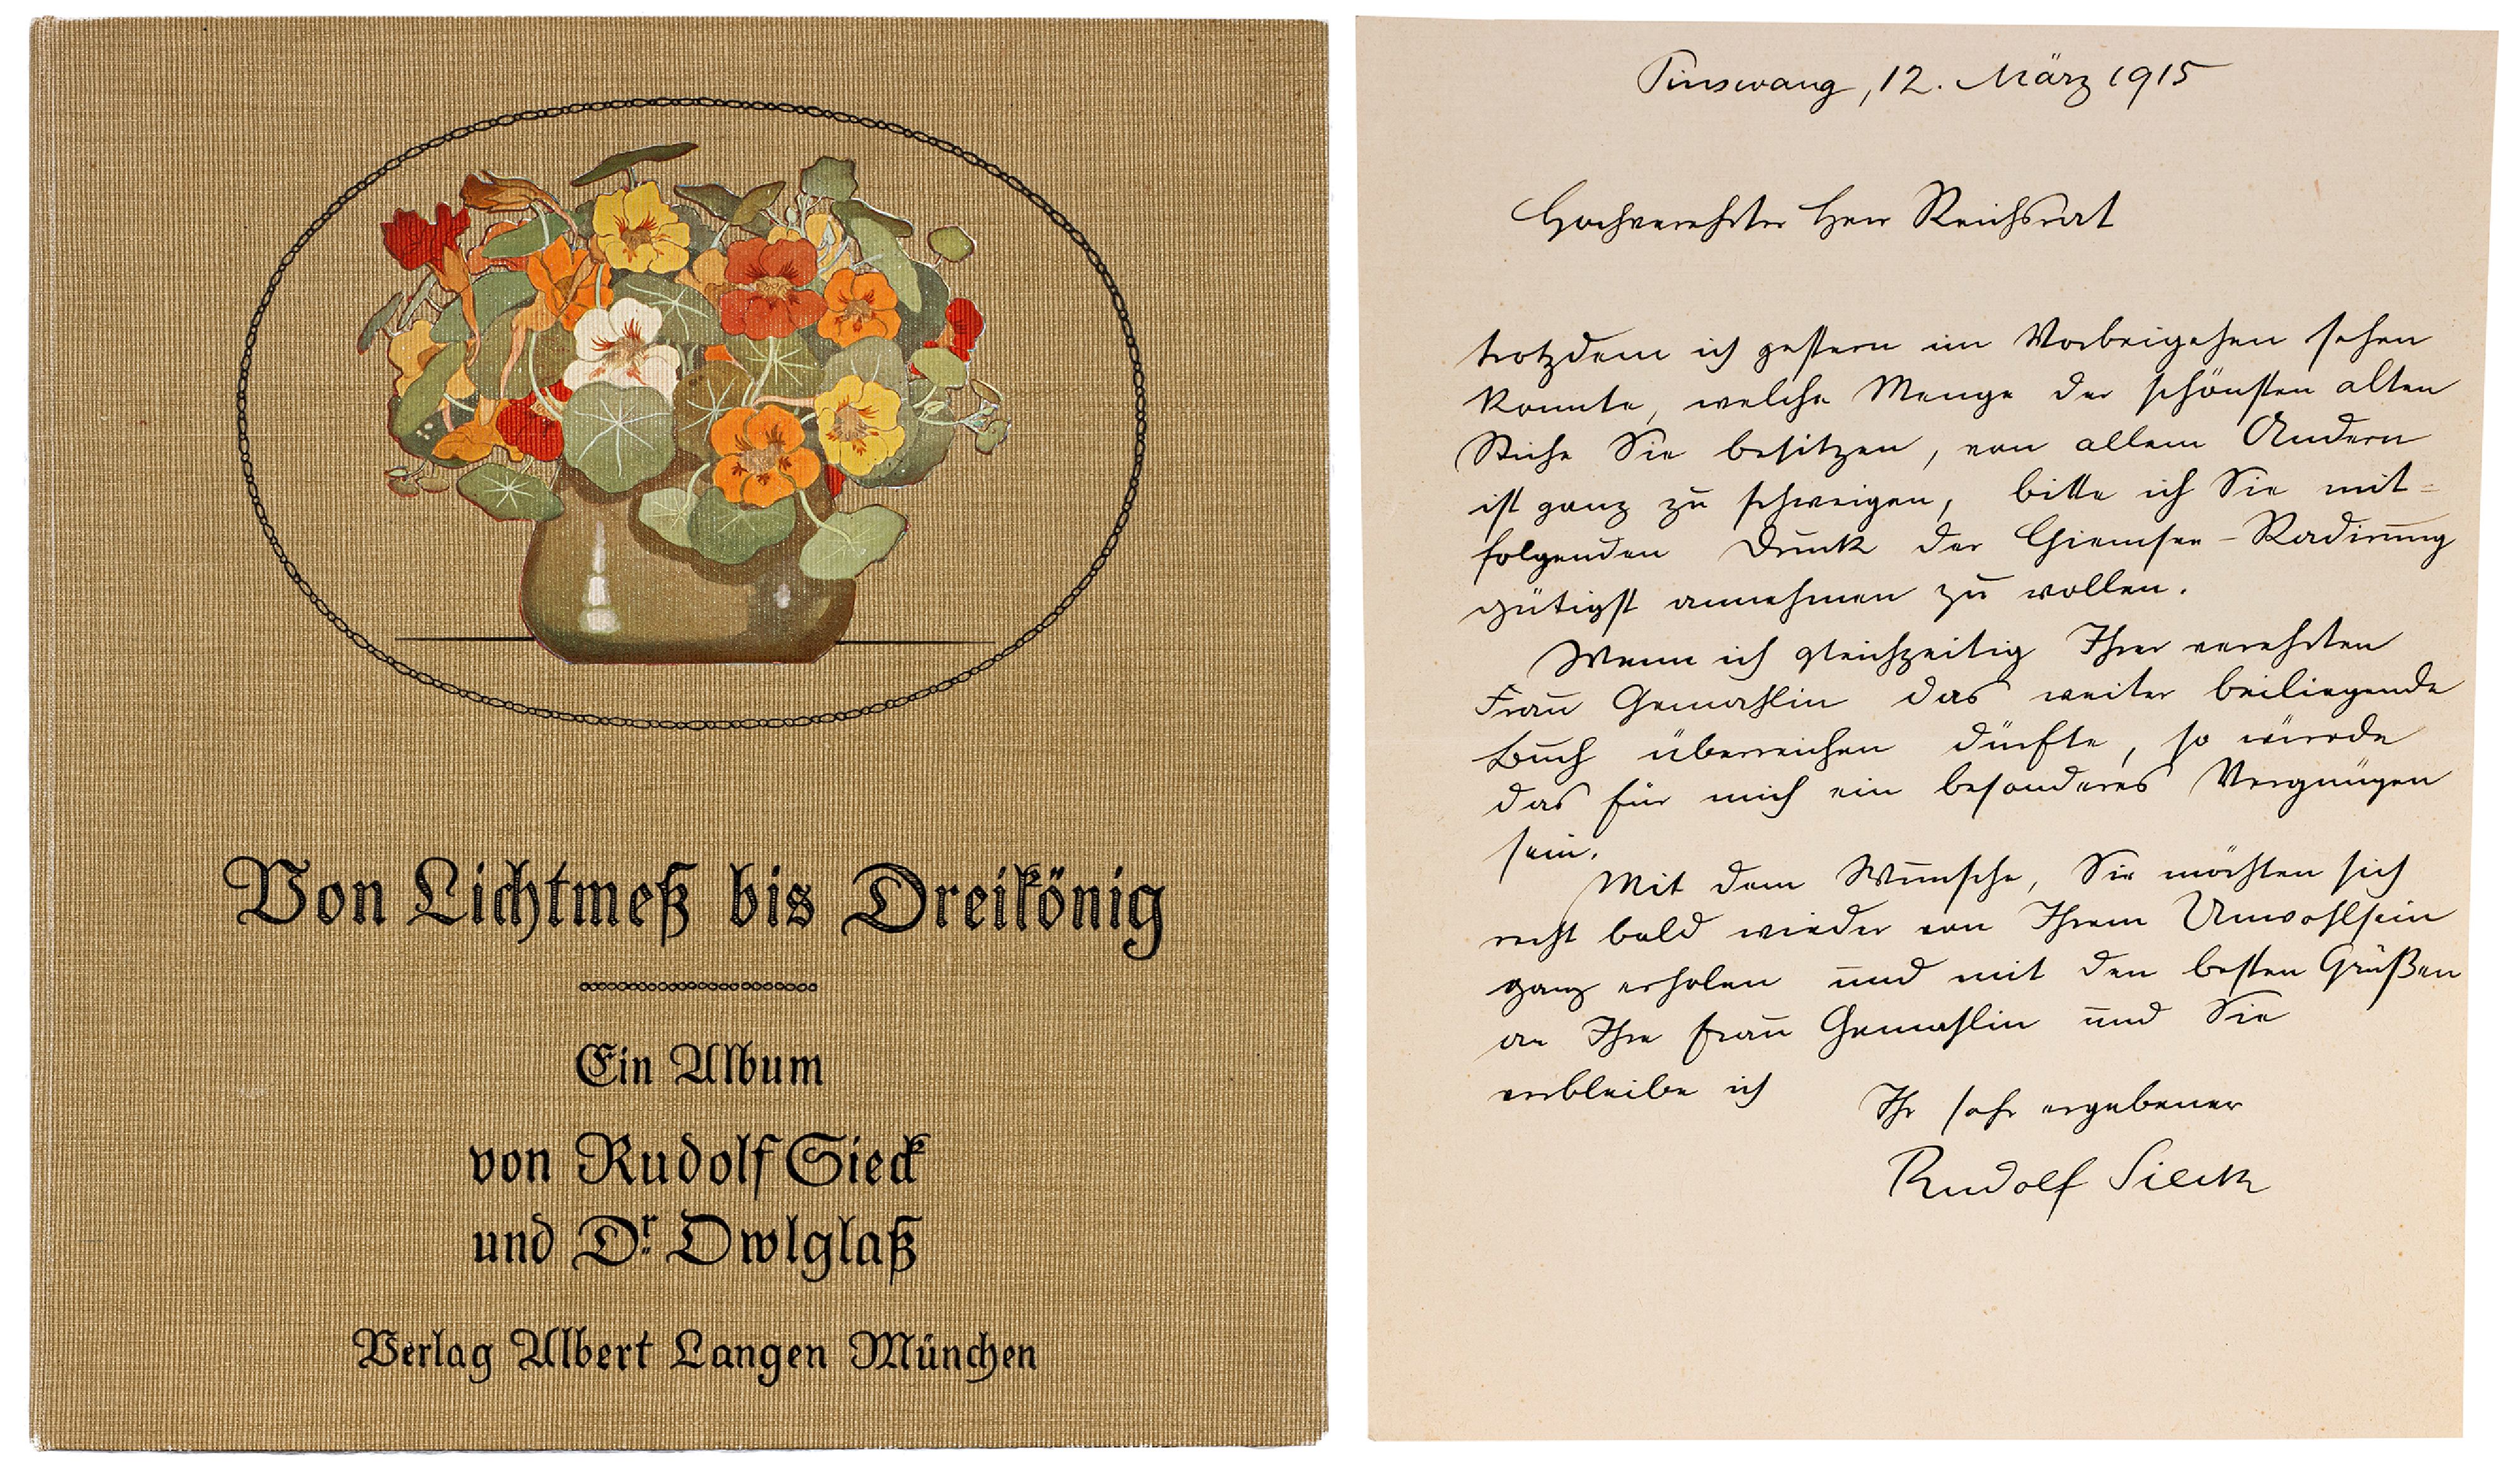 Von Lichtmeß bis Dreikönig
Ein Album
von Rudolf Sieck
und Dr. Owlglaß
Verlag Albert Langen München
Pinswang, 12. März 1915
Hochverehrter Herr Reichsrat
trotzdem ich gestern im Vorbeigehen sehen
konnte, welche Menge der schönsten alten
Stiche Sie besitzen, von allem Andern
ist ganz zu schweigen, bitte ich Sie mit=
folgenden Druck der Chiemsee-Radirung
gütigst annehmen zu wollen.
Wenn ich gleichzeitig Ihrer verehrten
Frau Gemahlin das weiter beiliegende
Buch überreichen dürfte, so würde
das für mich ein besonderes Vergnügen
sein.
Mit dem Wunsche, Sie möchten sich
recht bald wieder von Ihrem Unwohlsein
ganz erholen und mit den besten Grüßen
an Ihre Frau Gemahlin und Sie
verbleibe ich
Ihr sehr ergebener
Rudolf Sieck